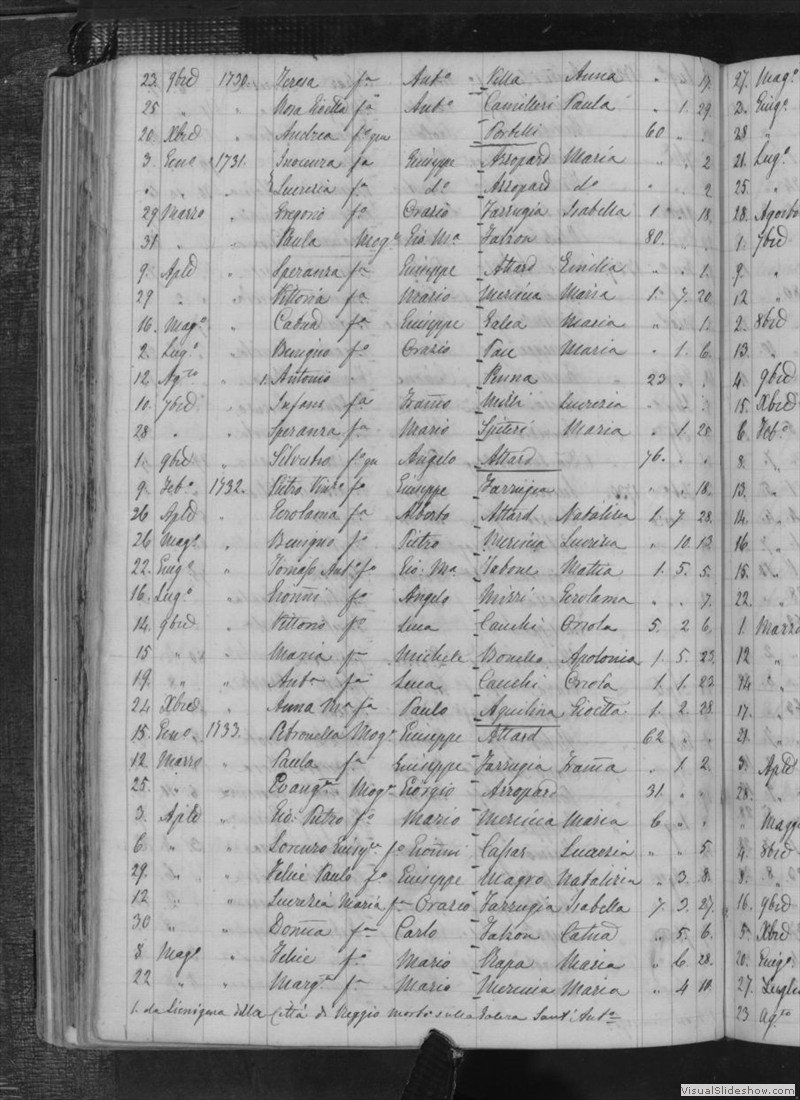 23. 9brē 1730. Teresa fa Anto Vella Anna " " 19.
25 " " Rosa Gioetta fa Anto Camilleri Paula " 1. 29.
20. Xbrē " Andrea fo qm Portelli 60 " "
3. Enno 1731. Inocenza fa Giuseppe Arropard Maria " " 2
" " " Lucrezia fa do Arropard do " " 2
29 Marzo " Gregorio fo Orazio Farrugia Isabella 1 " 18.
31 " " Paula Moge Gio Ma Falzon 80. " "
9. Aplē " Speranza fa Giuseppe Attard Emilia " " 1.
29 " " Vittoria fa Mario Mercieca Maria 1. 7. 20
16. Mago " Catnā fa Giuseppe Galea Maria " " 1.
2. Lugo " Benigno fo Orazio Pace Maria " 1. 6.
12. Agto " 1. Antonio " Penna 23 " "
10. 7brē " Infans fa Lucrezia " " "
28 " " Speranza fa Mario Spiteri Maria " 1. 25
1. 9brē " Silvestro fo qm Angelo Attard 76. " "
9 Febo 1732. Pietro fo Giuseppe Farrugia " " 18.
26 Aplē " Gerolama fa Alberto Attard Natalizia 1. 7 28.
26 Mago " Benigno fo Pietro Mercieca Lucrezia " 10. 13.
22. Giugo " Tomaso Anto fo Gio. Ma Vabone Mattia 1. 5. 5.
16. Lugo " Gionñi fo Angelo Mizzi Gerolama " " 7.
14. 9brē " Vittorio fo Luca Cauchi Orsola 5. 2 6.
15 " " Maria fa Michele Bonello Apolonia 1. 5. 23.
19. " " Anta fa Luca Cauchi Orsola 1. 1. 23
24 Xbrē " Anna Ma fa Paulo Aquilina Gioetta 1. 2. 28.
15. Enno 1733. Petronella Moge Giuseppe Attard 62 " "
12 Marzo " Paula fa Giuseppe Farrugia " 1 2.
25. " " Evangta Moge Giorgio Arropard 31. " "
3. Aplē " Gio: Pietro fo Mario Mercieca Maria 6 " "
6 " " Lorenzo fo Gionñi Caspar Lucrezia " " 5
29. " " Felice Paulo fo Giuseppe Magro Natalizia " 3. 8.
12 " " Lucrezia Maria fa Orazio Farrugia Isabella 7. 3. 27.
30 " " Donña fa Carlo Falzon Catnā " 5. 6.
8 Mago " Felice fo Mario Rapa Maria " 6 28.
22 " " Margta fa Mario Mercieca Maria " 4 18.
1. da della Città di Reggio morto sulla Galera Sant'Anto
27. Mago
2. Giugo
28 "
21. Lugo
25. "
28. Agosto
1. 7brē
9. "
12 "
2. 8brē
13. "
4. 9brē
15. Xbrē
6 Febo
8. "
13. "
14. "
16. "
15. "
22. "
1. Marzo
12 "
14 "
17. "
21. "
3. Aplē
28. "
" Maggo
4. 8brē
8. "
16. 9brē
5. Xbrē
20. Giugo
27. Luglio
23. Agto
VisualSlideshow.com